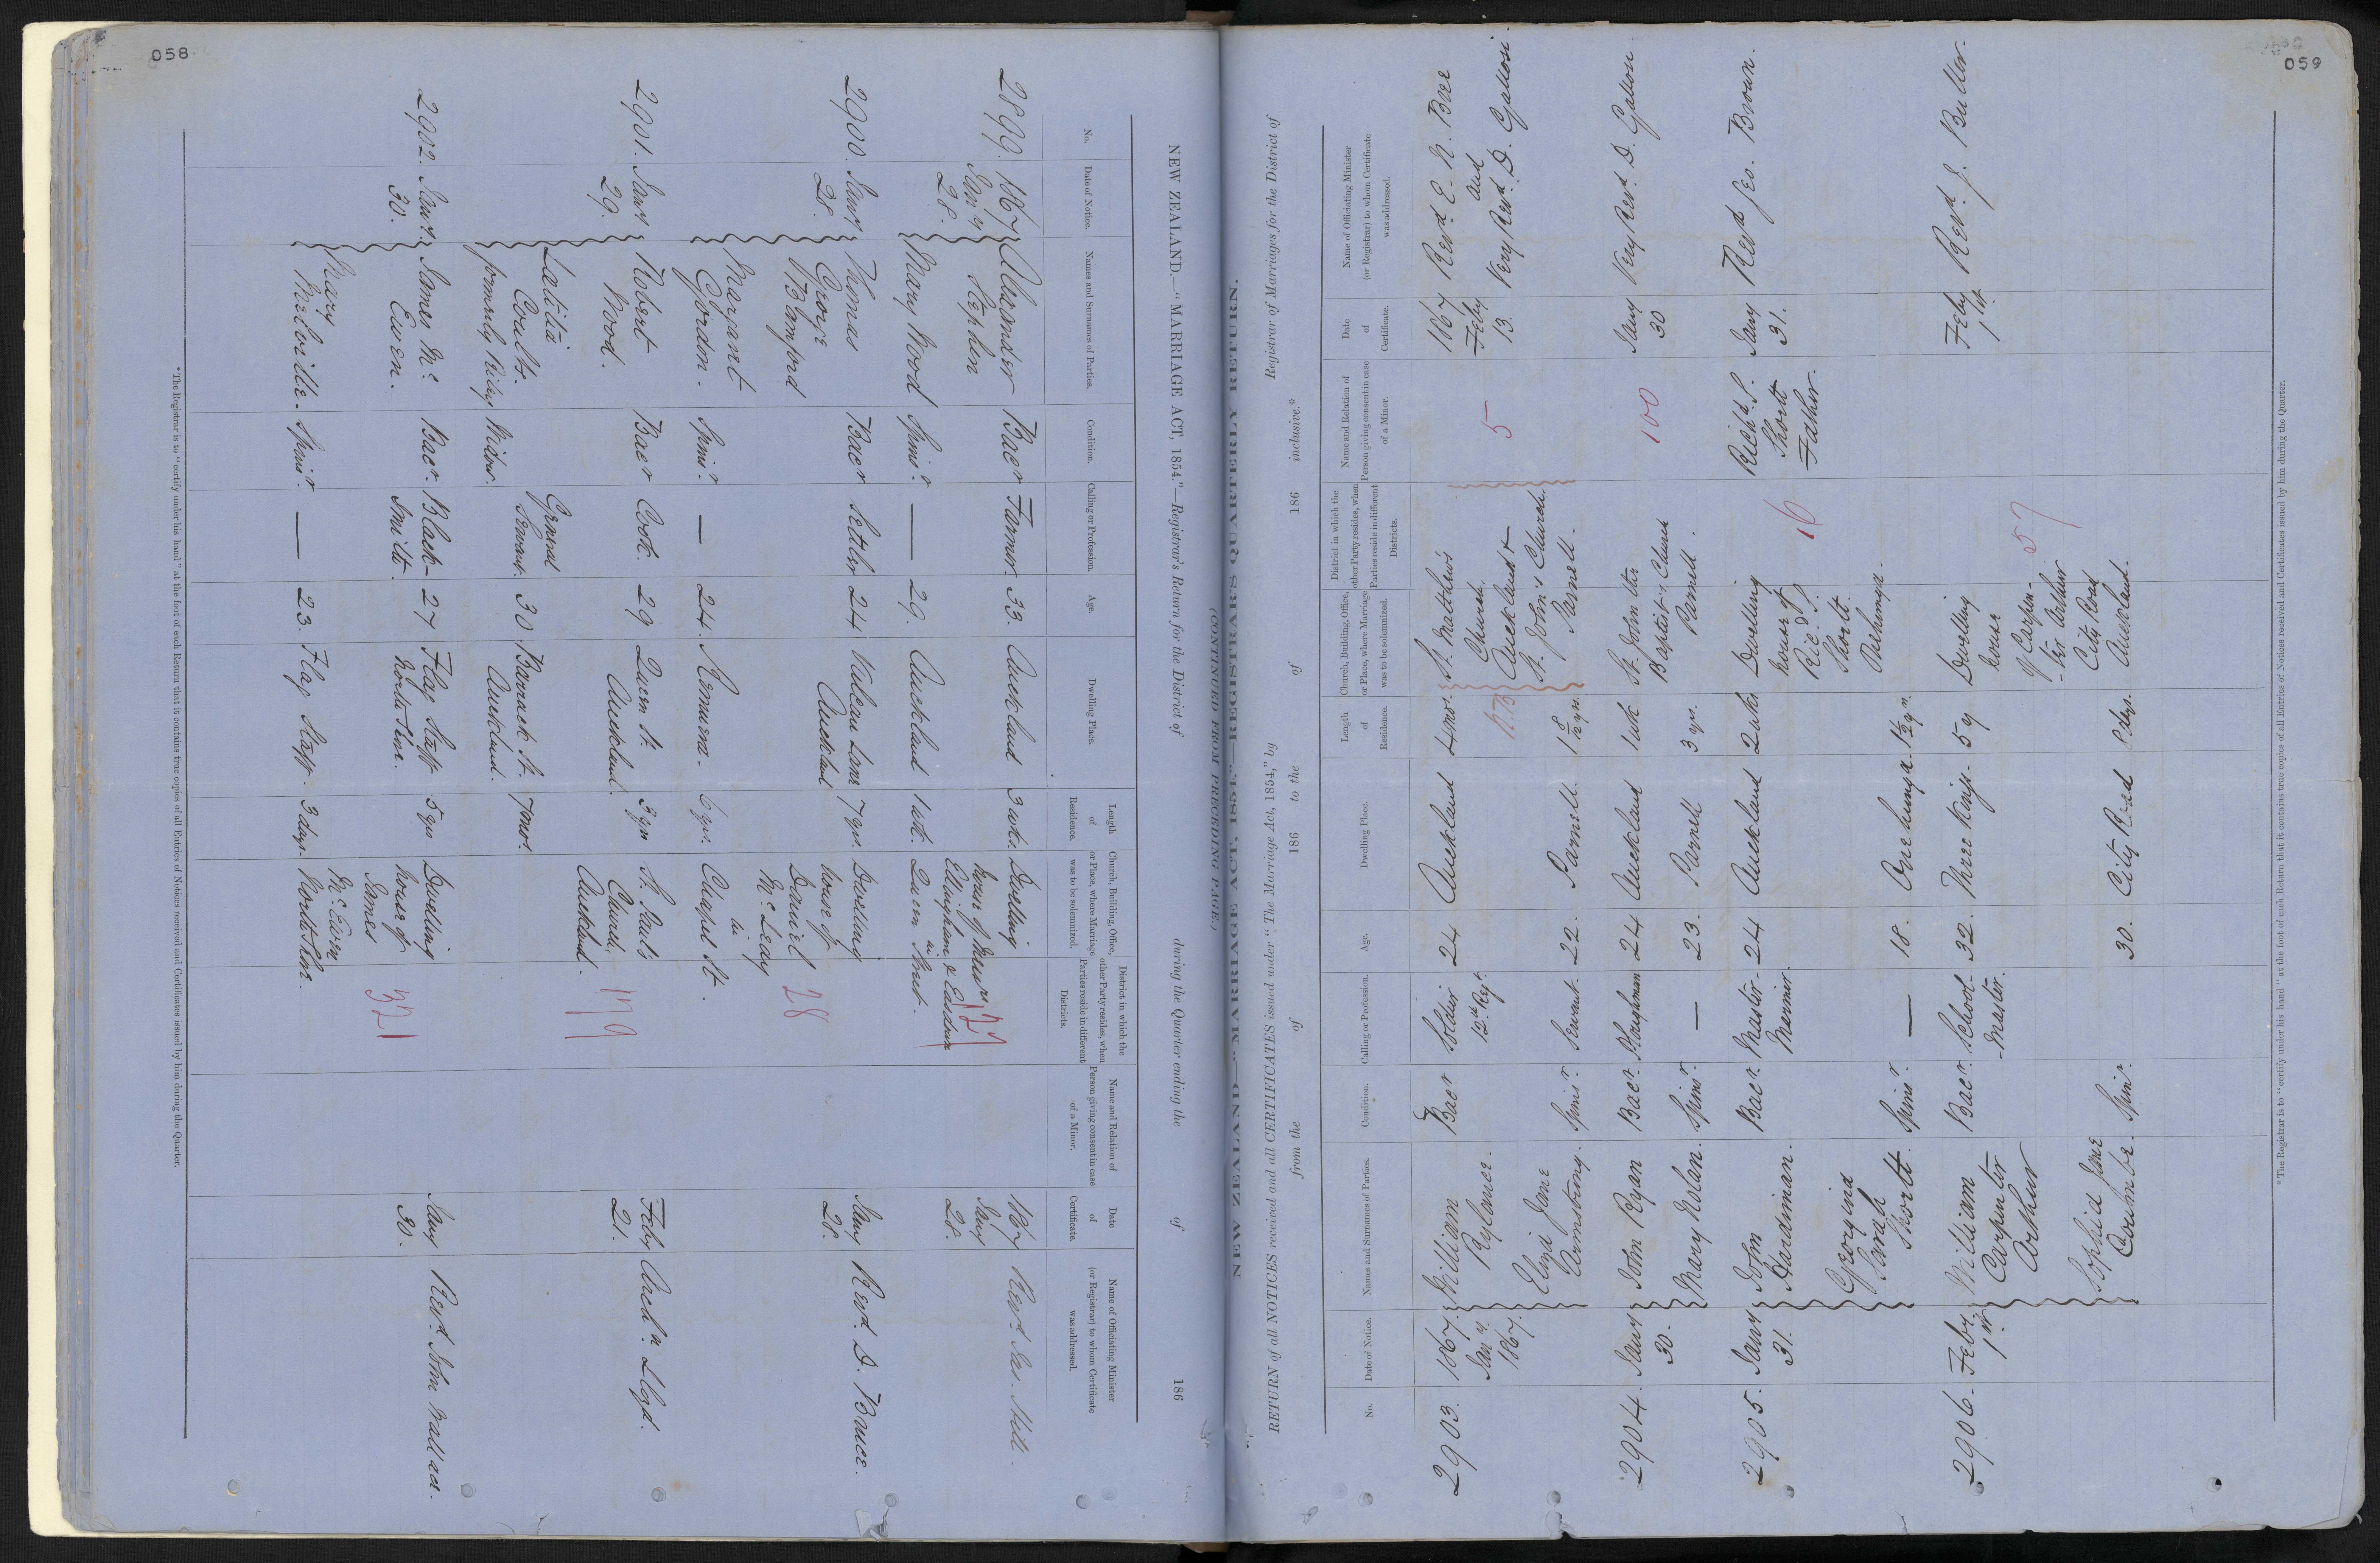 058
NEW ZEALAND.—"MARRIAGE ACT, 1854."—Registrar's Return, for the District of during the Quarter ending the of 186
No.
Date of Notice.
Names and Surnames of Parties.
Condition.
Calling or Profession.
Age.
Dwelling Place.
Length of Residence.
Church, Building, Office, or Place, where Marriage was to be solemnized.
District in which the other Party resides, when Parties reside in different Districts.
Name and Relation of Person giving consent in case of a Minor.
Date of Certificate.
Name of Officiating Minister (or Registrar) to whom Certificate was addressed.
2899. 1867 Alexander Bacr Farmer. 33. Auckland 3 wks. Dwelling 1867 Revd. Jas. Hill.
Jany Stephen house of Messrs. 127 Jany
28. Ellingham & Eastdown 28.
Mary Wood Spinr. — 29. Auckland 1 wk. in Queen Street.
2900. Jany Thomas Bacr Settler 24 Vulcan Lane 7 yrs. Dwelling Jany Revd. D. Bruce.
28. George Auckland house of 28 28.
Bamford Daniel
McLeay
Margaret in
Gordon. Spinr. — 24. Remuera. 6 yrs. Chapel St.
2901. Jany Robert Bacr Cook. 29 Queen St. 3 yrs St. Paul's Feby Archdn. Lloyd.
29. Wood. Auckland. Church, 179 21.
Auckland.
Latitia General
Coults. Servant. 30 Barrack St. 7 mos.
formerly Widow. Auckland.
2902. Jany. James Mc Bacr. Black- 27 Flag Staff 5 yrs Dwelling Jany Revd. John Wallace.
30. Ewen. Smith. North Shore. house of 321 30.
James
Mary McEwen
Melville. Spinr. — 23. Flag Staff. 3 days. North Shore.
*The Registrar is to "certify under his hand" at the foot of each Return that it contains true copies of all Entries of Notices received and Certificates issued by him during the Quarter.
059
NEW ZEALAND.—"MARRIAGE ACT, 1854."—REGISTRAR'S QUARTERLY RETURN.
(CONTINUED FROM PRECEDING PAGE.)
RETURN of all NOTICES received and all CERTIFICATES issued under "The Marriage Act, 1854," by Registrar of Marriages for the District of
from the of 186 to the of 186 inclusive.*
No.
Date of Notice.
Names and Surnames of Parties.
Condition.
Calling or Profession.
Age.
Dwelling Place.
Length of Residence.
Church, Building, Office, or Place, where Marriage was to be solemnized.
District in which the other Party resides, when Parties reside in different Districts.
Name and Relation of Person giving consent in case of a Minor.
Date of Certificate.
Name of Officiating Minister (or Registrar) to whom Certificate was addressed.
2903. 1867. William Bacr Soldier 24 Auckland 4 mos. St. Matthew's 1867 Revd. E. N. Bree
Jany. Rylance. 12th Regt. Church, Feby and
1867. Auckland & 5 13. Very Revd. D.
Eliza Jane St. John's Church.
Armstrong. Spinr. Servant. 22. Parnell. 1 8/12 yrs. Parnell.
2904. Jany John Ryan Bacr. Ploughman 24 Auckland 1 wk St. John the 100 Jany Very Revd. D.
30. Mary Nolan. Spinr. — 23. Parnell 3 yrs. Baptist's Church 30
Parnell.
2905. Jany John Bacr. Master 24 Auckland 2 wks Dwelling Richd. P. Jany Revd Geo. Brown.
31. Hardiman. Mariner. house of Shortt 31.
Ric. P. 16 Father.
Georgina Shortt.
Sarah Onehunga.
Shortt. Spinr. — 18. Onehunga. 1½ yr.
2906. Feby. William Bacr. School- 32. Three Kings. 5 y. Dwelling Feby Revd. J. Buller.
1st. Carpenter master. house 1st.
Arthur of Carpen- 57
-ter Arthur
Sophia Jane City Road
Coumbe. Spinr. 30. City Road days. Auckland.
*The Registrar is to "certify under his hand" at the foot of each Return that it contains true copies of all Entries of Notices received and Certificates issued by him during the Quarter.